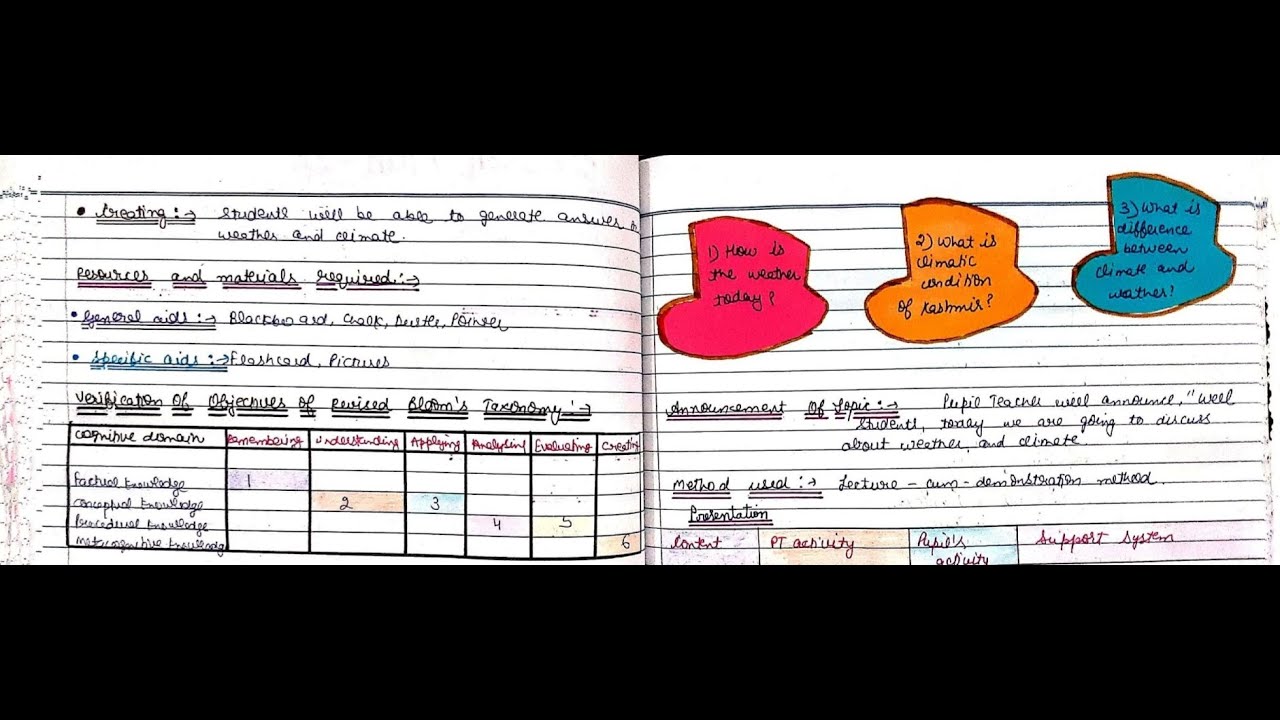 • Creating:→ Students will be able to generate answer
weather and climate.
Resources and materials required:→
• General aids:→ Blackboard, Chalk, Duster, Pointer
• Specific aids:→ Flashcard, Pictures
Verification Of Objectives Of Revised Bloom's Taxonomy:→
Cognitive domain Remembering Understanding Applying Analysing Evaluating Creatin
Factual Knowledge 1
Conceptual Knowledge 2 3
Procedural Knowledge 4 5
Metacognitive Knowledge 6
1) How is
the weather
today?
2) What is
climatic
condition
of Kashmir?
3) What is
difference
between
climate and
weather?
Announcement Of Topic:→ Pupil Teacher will announce, "Well
students, today we are going to discuss
about weather and climate
Method used:→ Lecture - cum - demonstration method.
Presentation
Content PT activity Pupil's Support System
activity